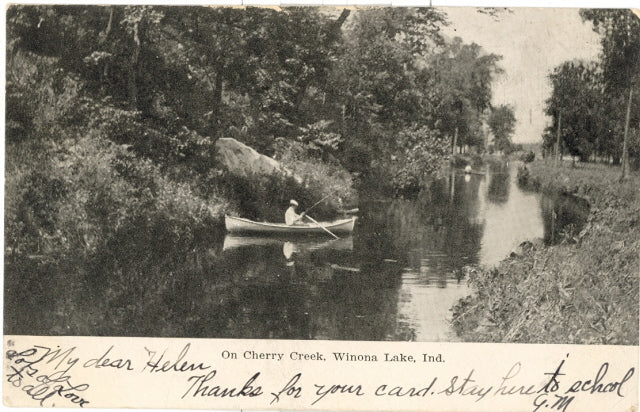 On Cherry Creek, Winona Lake, Ind.
My dear Helen
Thanks for your card. Stay here to school
G.M
Lots Love
to all.